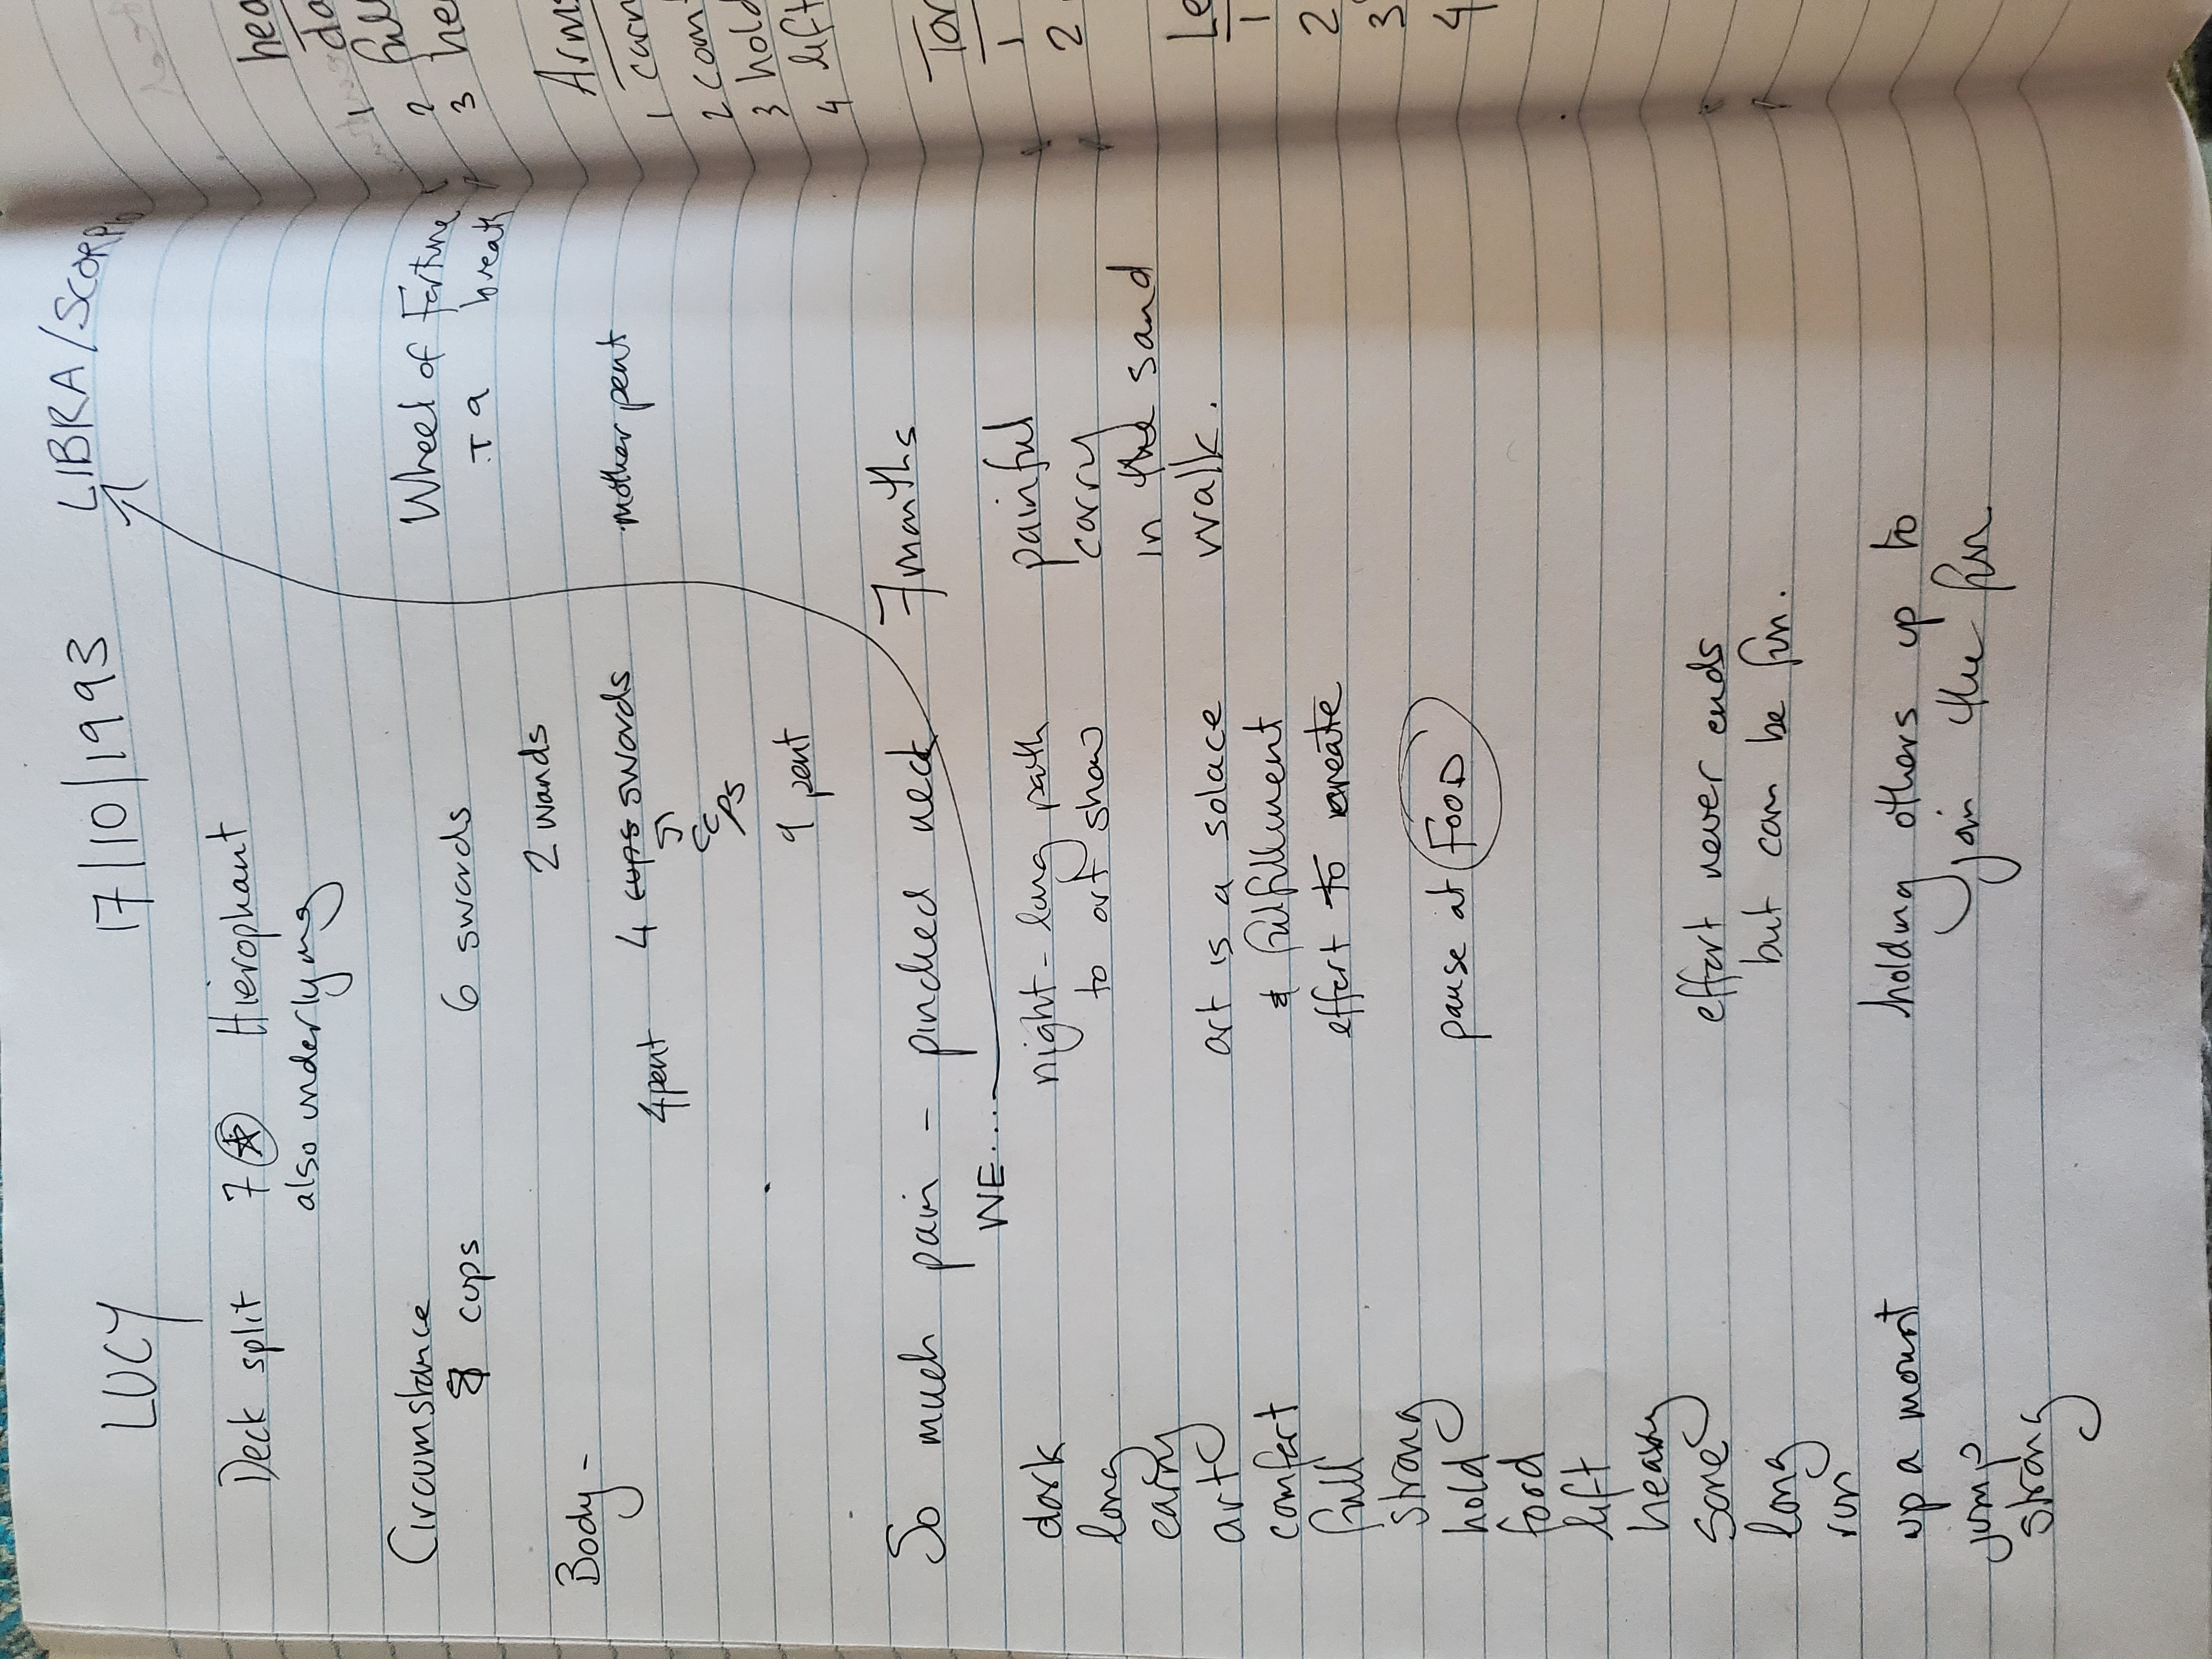 LUCY 17/10/1993 LIBRA/SCORPIO
Deck split 7 Hierophant
also underlying
Circumstance Wheel of Fortune
8 cups 6 swords
a breath
2 wands
Body -
4pent 4 cups swords mother pent
9 pent
So much pain - pinched neck 7 months
WE....
dark night - long path painful
long to art show carry
early in the sand
art art is a solace walk.
comfort & fulfillment
full effort to create
strong
hold pause at FOOD
food
lift
heavy
same effort never ends
long but can be fun.
run
up a mount holding others up to
jump join the fun
strong
hea
da
1 full
2
3 he
Arm
1 carr
2 com
3 hold
4 lift
Tor
1
2
Le
1
2
3
4